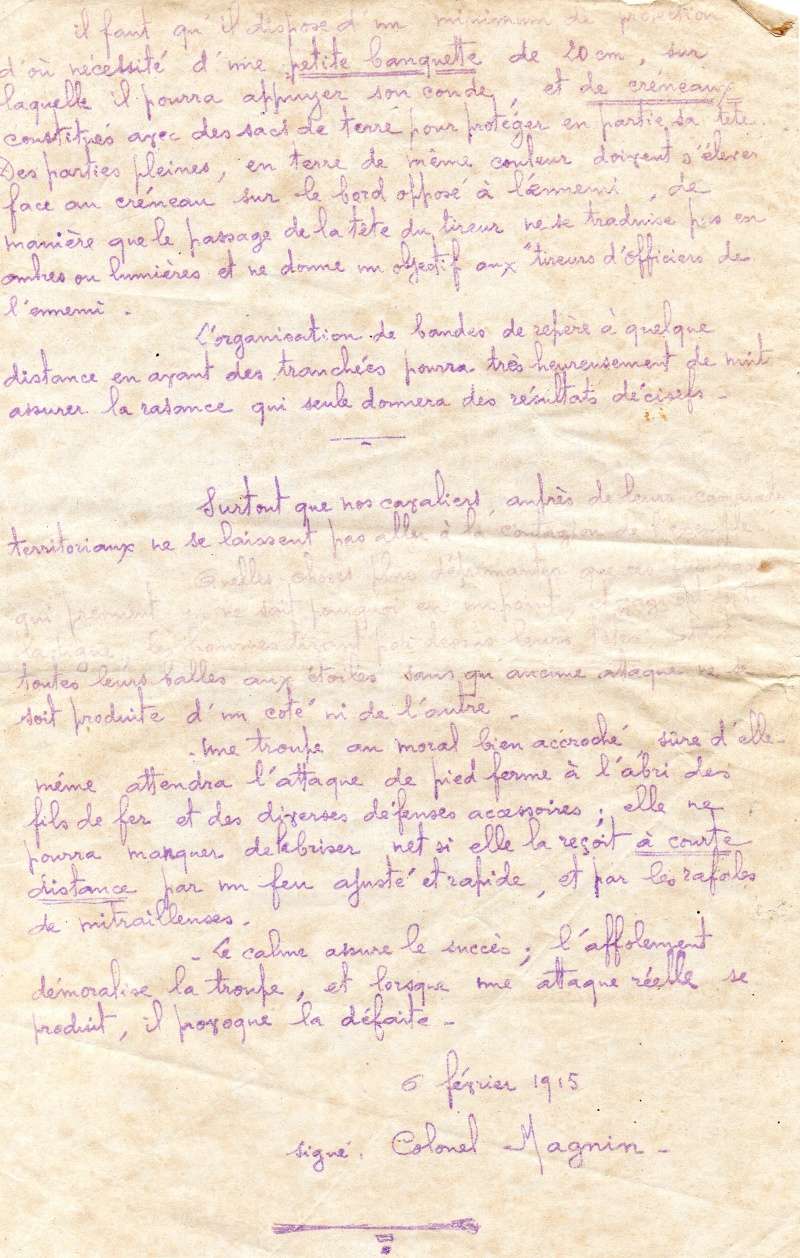 il faut qu'il dispose d'un minimum de protection
d'où nécessité d'une petite banquette de 20cm, sur
laquelle il pourra appuyer son coude, et de créneaux
constitués avec des sacs de terre pour protéger en partie sa tête.
Des parties pleines, en terre de même couleur doivent s'élever
face au créneau sur le bord opposé à l'ennemi, de
manière que le passage de la tête du tireur ne se traduise pas en
ombres ou lumières et ne donne un objectif aux "tireurs d'officiers de
l'ennemi.
L'organisation de bandes de repère à quelque
distance en avant des tranchées pourra très heureusement de nuit
assurer la rasance qui seule donnera des résultats décisifs -
Surtout que nos cavaliers, auprès de leurs camarades
territoriaux ne se laissent pas aller à la contagion de l'exemple
Quelles choses plus déprimantes que ces
qui prennent on ne sait pourquoi en un point,
les hommes tirant par dessus leurs têtes
toutes leurs balles aux étoiles sans qu'aucune attaque ne se
soit produite d'un coté ni de l'autre -
- une troupe au moral bien accroché, sûre d'elle-
même attendra l'attaque de pied ferme à l'abri des
fils de fer et des diverses défenses accessoires; elle ne
pourra manquer de la briser net si elle la reçoit à courte
distance par un feu ajusté et rapide, et par les rafales
de mitrailleuses.
- Le calme assure le succès; l'affolement
démoralise la troupe, et lorsque une attaque réelle se
produit, il provoque la défaite -
6 février 1915
signé. Colonel Magnin -